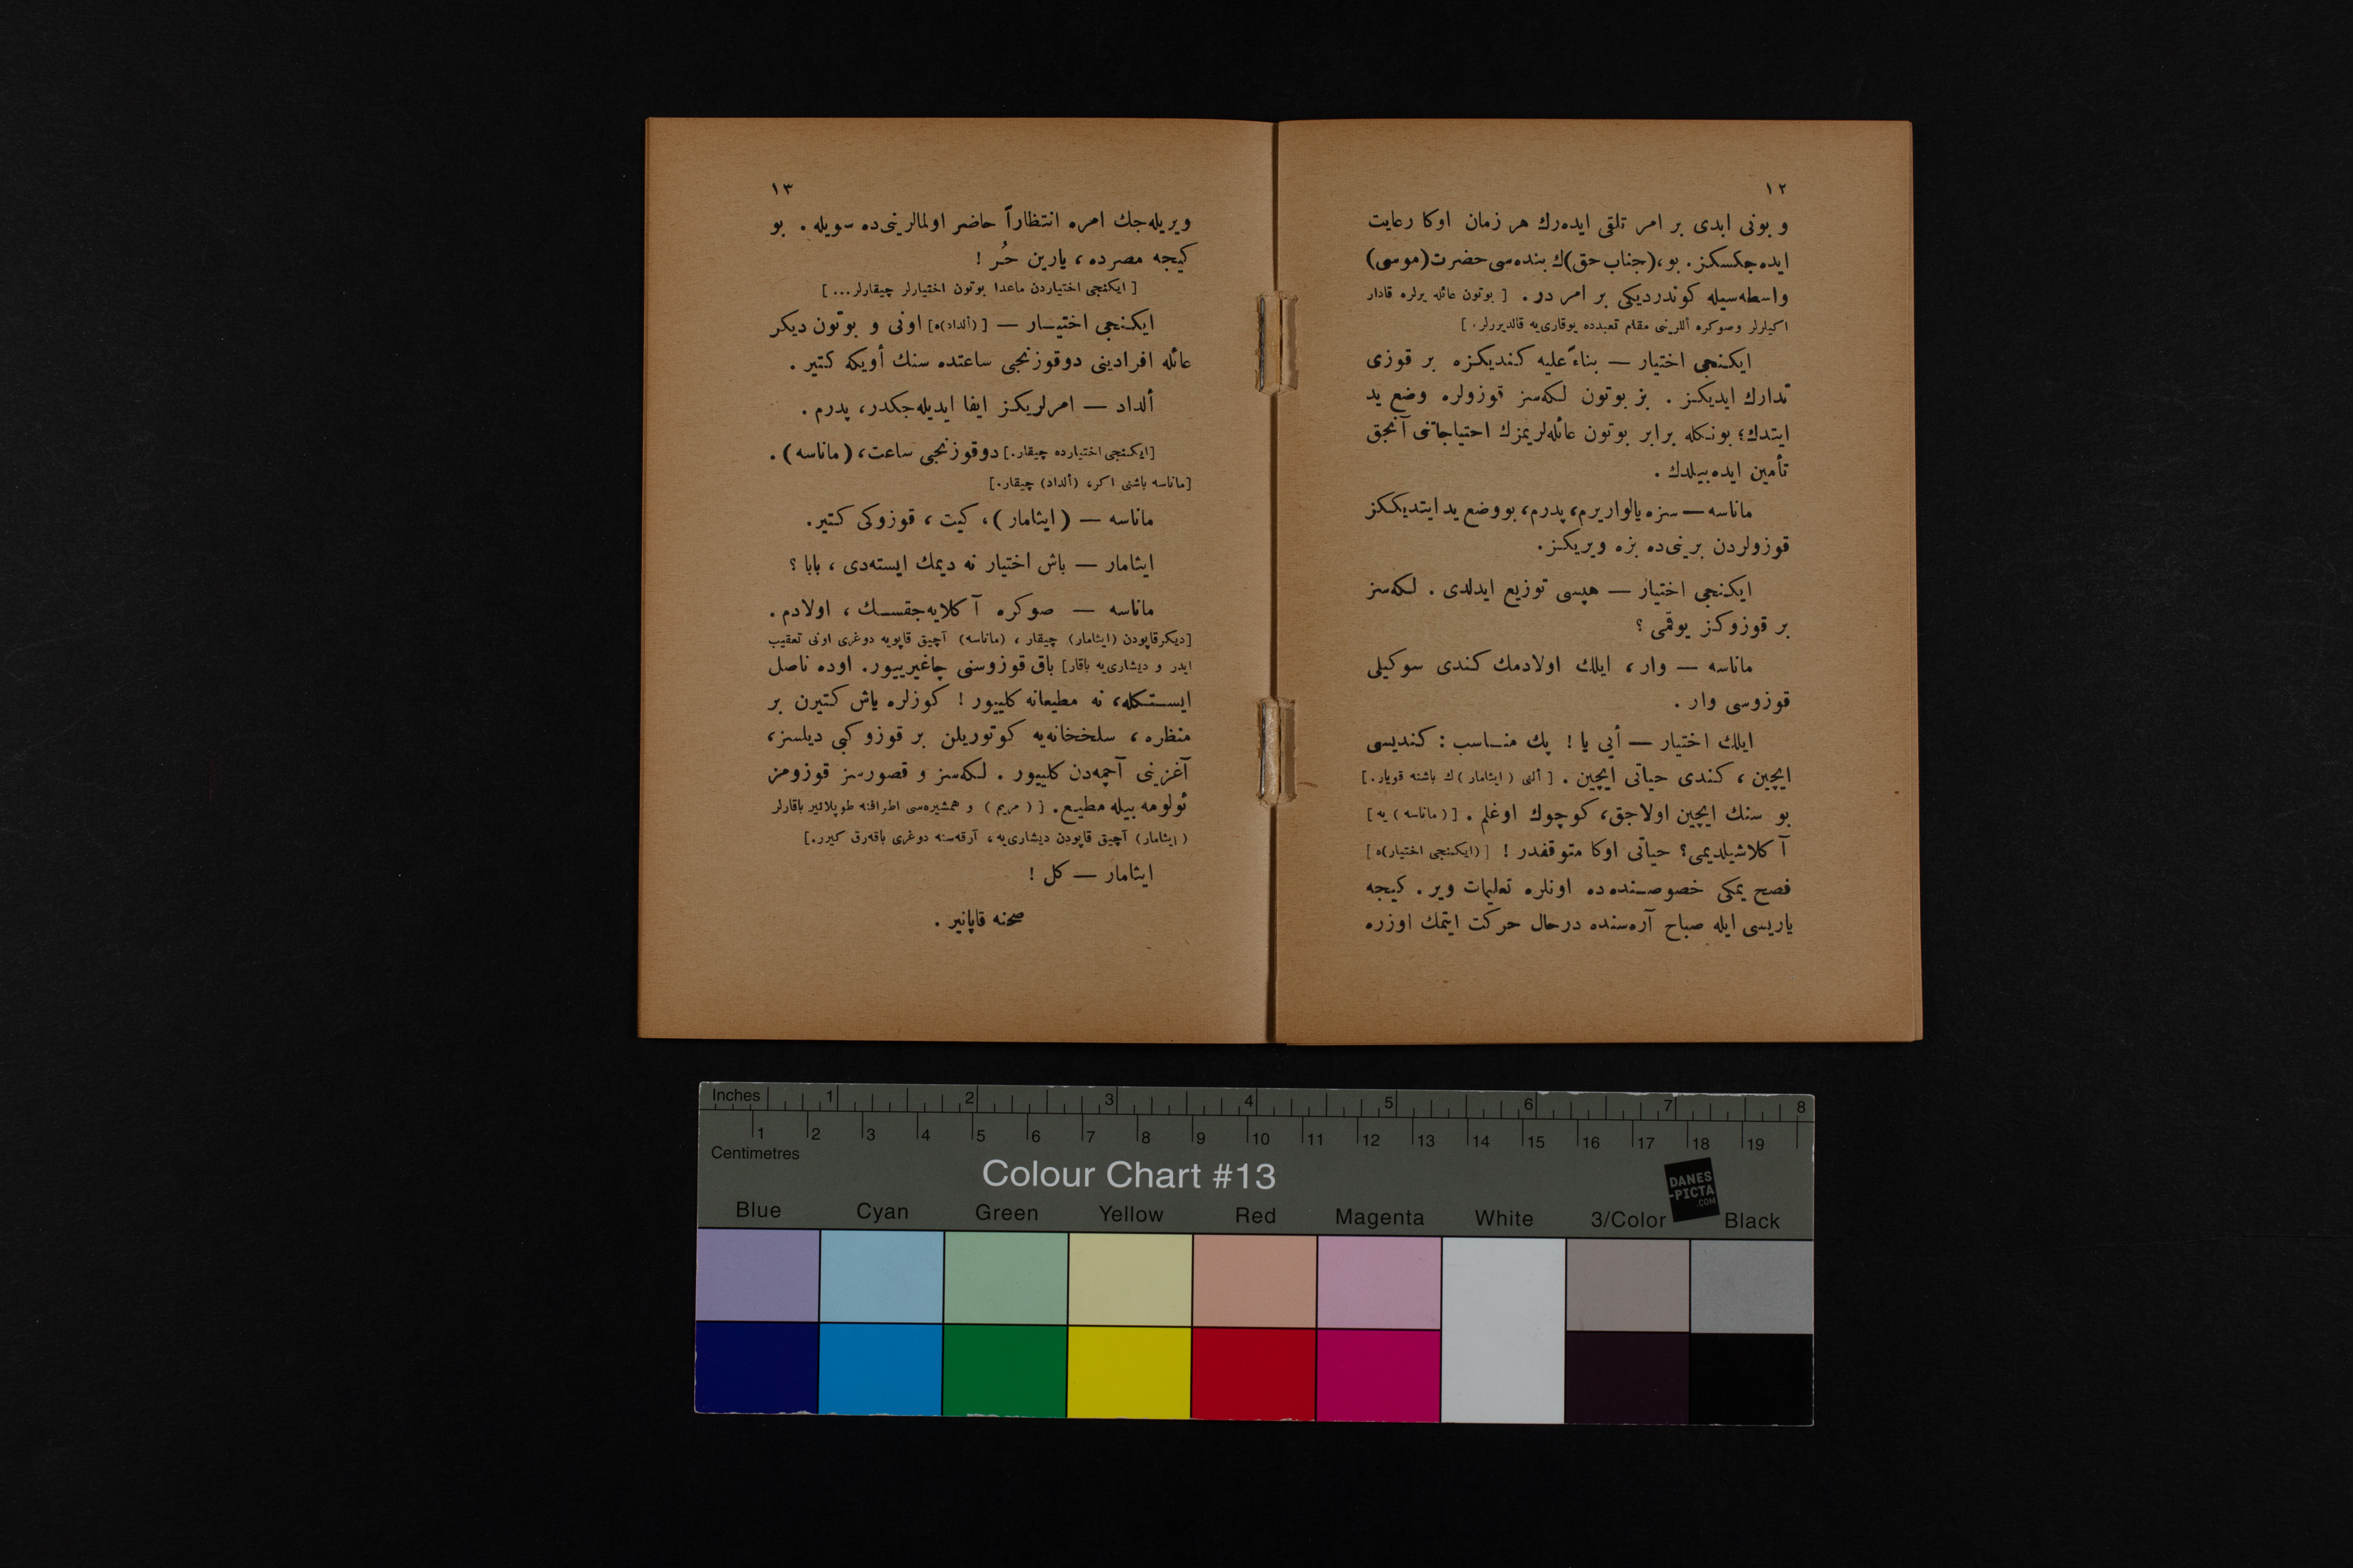 ١٢
و بونی ابدی بر امر تلقی ایده‌رك هر زمان اوكا رعایت
ایده‌جكسكز. بو، (جناب حق)ك بنده‌سی حضرت (موسی)
واسطه‌سیله كوندردیكی بر امر در. [ بوتون عائله یرلره قادار
اكیلرلر وصوكره أللرینی مقام تعبدده یوقاری‌یه قالدیررلر. ]
ایكنجی اختیار — بناءً علیه كندیكزه بر قوزی
تدارك ایدیكز . بز بوتون لكه‌سز قوزولره وضع ید
ایتدك؛ بونكله برابر بوتون عائله‌لریمزك احتیاجاتنی آنجق
تأمین ایده‌بیلدك .
ماناسه — سزه یالواریرم، پدرم، بو وضع ید ایتدیككز
قوزولردن برینی‌ده بزه ویریكز.
ایكنجی اختیار — هپسی توزیع ایدلدی . لكه‌سز
بر قوزوكز یوقمی ؟
ماناسه — وار ، ایلك اولادمك كندی سوكیلی
قوزوسی وار .
ایلك اختیار — أیی یا ! پك مناسب : كندیسی
ایچین ، كندی حیاتی ایچین . [ ألنی ( ایثامار )ك باشنه قویار. ]
بو سنك ایچین اولاجق، كوچوك اوغلم . [ ( ماناسه ) یه ]
آ كلاشیلدیمی؟ حیاتی اوكا متوقفدر ! [ (ایكنجی اختیار)ه ]
فصح یمكی خصوصنده‌ده اونلره تعلیمات ویر . كیجه
یاریسی ایله صباح آره‌سنده درحال حركت ایتمك اوزره
١٣
ویریله‌جك امره انتظاراً حاضر اولمالرینی‌ده سویله . بو
كیجه مصرده ، یارین حُر !
[ ایكنجی اختیاردن ماعدا بوتون اختیارلر چیقارلر... ]
ایكنجی اختیار — [ (ألداد)ه ] اونی و بوتون دیكر
عائله افرادینی دوقوزنجی ساعتده سنك أویكه كتیر .
ألداد — امرلریكز ایفا ایدیله‌جكدر، پدرم .
[ایكنجی اختیارده چیقار.] دوقوزنجی ساعت، (ماناسه) .
[ماناسه باشنی اكر، (ألداد) چیقار.]
ماناسه — ( ایثامار )، كیت ، قوزوكی كتیر.
ایثامار — باش اختیار نه دیمك ایسته‌دی ، بابا ؟
ماناسه — صوكره آ كلایه‌جقسك ، اولادم .
[دیكرقاپودن (ایثامار) چیقار ، (ماناسه) آچیق قاپویه دوغری اونی تعقیب
ایدر و دیشاری‌یه باقار] باق قوزوسنی چاغیرییور. اوده ناصل
ایستكله، نه مطیعانه كلییور ! كوزلره یاش كتیرن بر
منظره ، سلخخانه‌یه كوتوریلن بر قوزو كبی دیلسز،
آغزینی آچمه‌دن كلییور . لكه‌سز و قصورسز قوزومز
ئولومه بیله مطیع. [ ( مریم ) و همشیره‌سی اطرافنه طوپلانیر باقارلر
( ایثامار) آچیق قاپودن دیشاری‌یه ، آرقه‌سنه دوغری باقه‌رق كیرر.]
ایثامار — كل !
صحنه قاپانیر .
Inches 1 2 3 4 5 6 7 8
1 2 3 4 5 6 7 8 9 10 11 12 13 14 15 16 17 18 19
Centimetres
Colour Chart #13
DANES
-PICTA
.COM
Blue Cyan Green Yellow Red Magenta White 3/Color Black